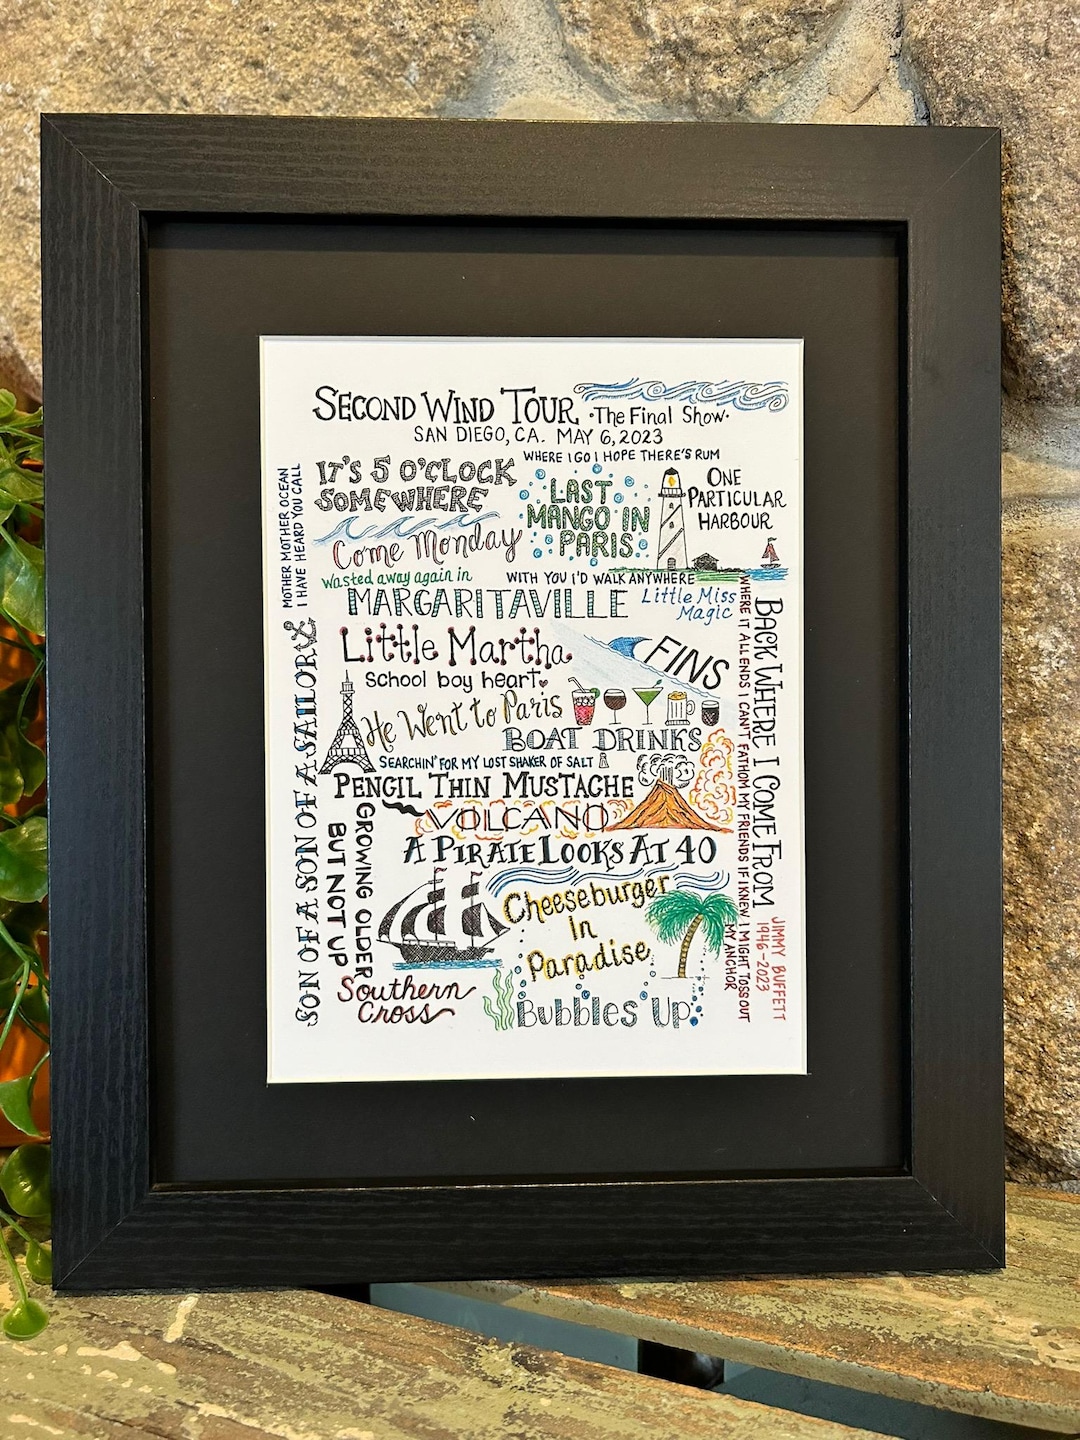 SECOND WIND TOUR
·The Final Show·
SAN DIEGO, CA. MAY 6, 2023
WHERE I GO I HOPE THERE'S RUM
IT'S 5 O'CLOCK
SOMEWHERE
LAST
MANGO IN
PARIS
ONE
PARTICULAR
HARBOUR
MOTHER MOTHER OCEAN
I HAVE HEARD YOU CALL
Come Monday
Wasted away again in
MARGARITAVILLE
WITH YOU I'D WALK ANYWHERE
Little Miss
Magic
Little Martha
School boy heart
FINS
He Went to Paris
BOAT DRINKS
SEARCHIN' FOR MY LOST SHAKER OF SALT
PENCIL THIN MUSTACHE
VOLCANO
A PIRATE LOOKS AT 40
SON OF A SON OF A SAILOR
GROWING OLDER
BUT NOT UP
Cheeseburger
In
Paradise
Southern
Cross
Bubbles Up
BACK WHERE I COME FROM
WHERE IT ALL ENDS I CAN'T FATHOM MY FRIENDS IF I KNEW I MIGHT TOSS OUT
MY ANCHOR
JIMMY BUFFETT
1946-2023